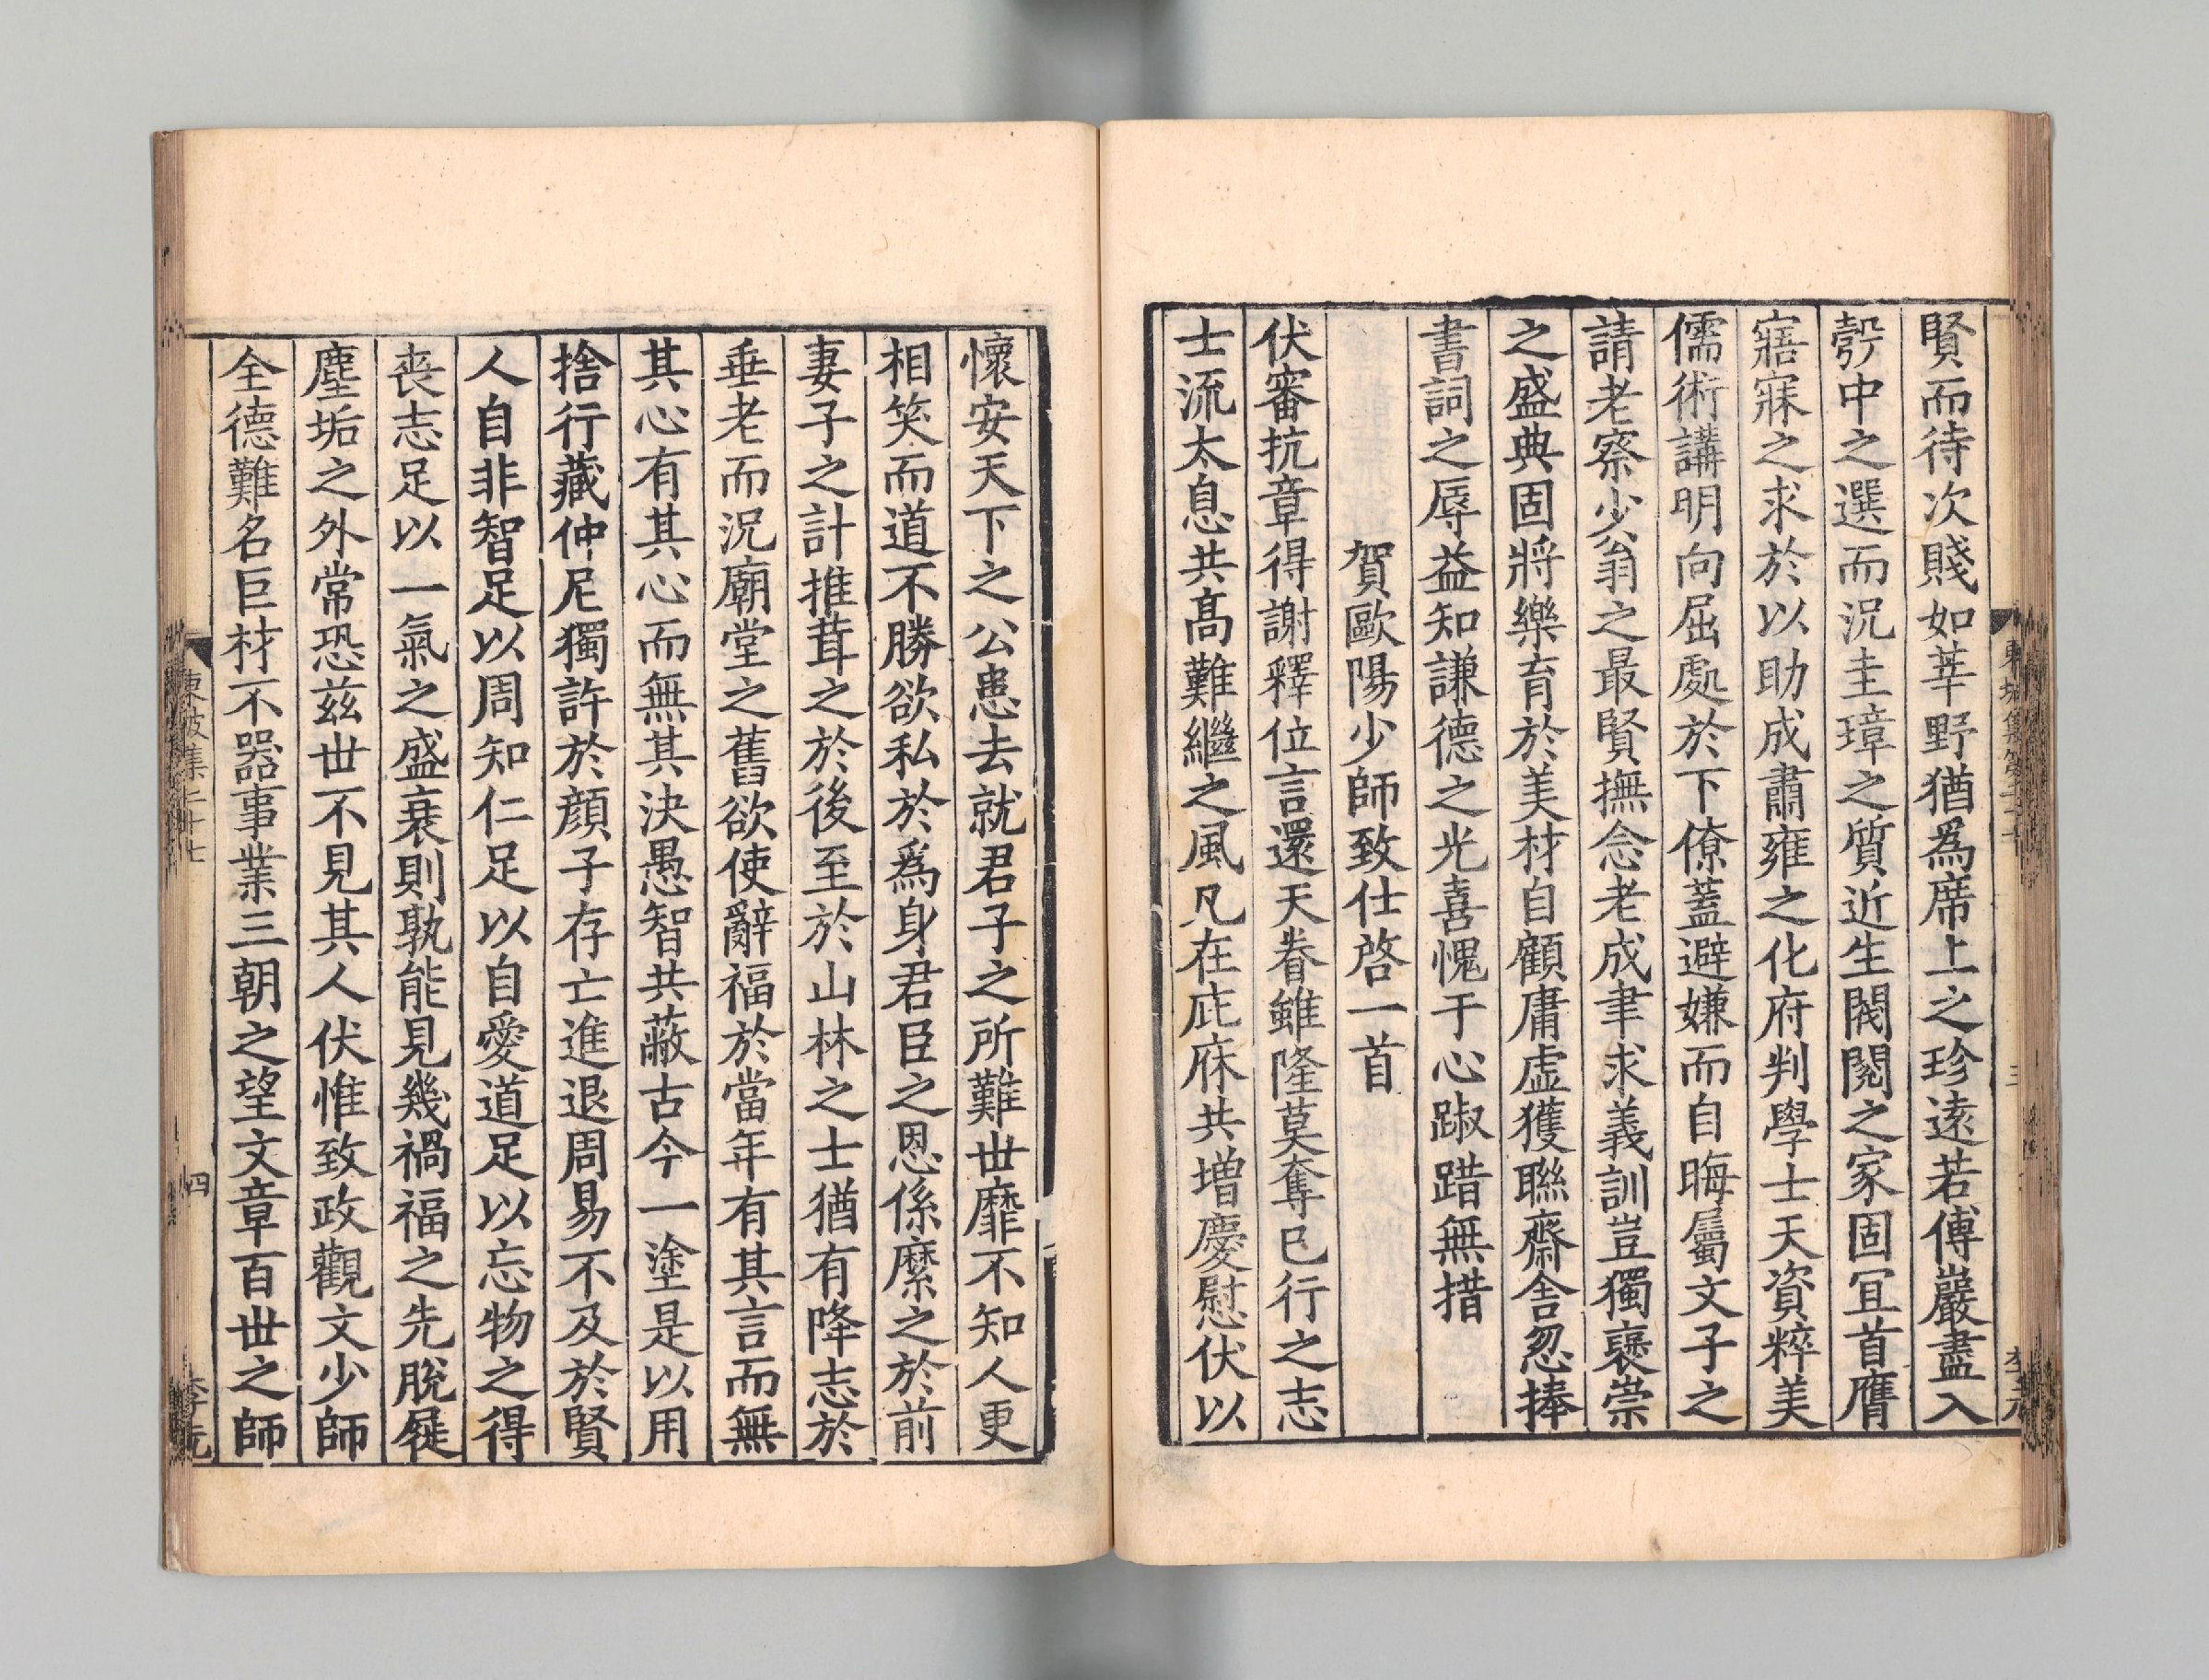 賢而待次賤如莘野猶爲席上之珍遠若傅巖盡入
彀中之選而況圭璋之質近生閥閱之家固宜首膺
寤寐之求於以助成肅雍之化府判學士天資粹美
儒術講明向屈處於下僚蓋避嫌而自晦屬文子之
請老察少翁之最賢撫念老成聿求義訓豈獨褒崇
之盛典固將樂育於美材自顧庸虛獲聯齋舍忽捧
書詞之辱益知謙德之光喜愧于心踧踖無措
賀歐陽少師致仕啓一首
伏審抗章得謝釋位言還天眷雖隆莫奪已行之志
士流太息共高難繼之風凡在庇庥共增慶慰伏以
懷安天下之公患去就君子之所難世靡不知人更
相笑而道不勝欲私於爲身君臣之恩係縻之於前
妻子之計推茸之於後至於山林之士猶有降志於
垂老而況廟堂之舊欲使辭福於當年有其言而無
其心有其心而無其決愚智共蔽古今一塗是以用
捨行藏仲尼獨許於顔子存亡進退周易不及於賢
人自非智足以周知仁足以自愛道足以忘物之得
喪志足以一氣之盛衰則孰能見幾禍福之先脫屣
塵垢之外常恐茲世不見其人伏惟致政觀文少師
全德難名巨材不器事業三朝之望文章百世之師
東坡集二十七
四